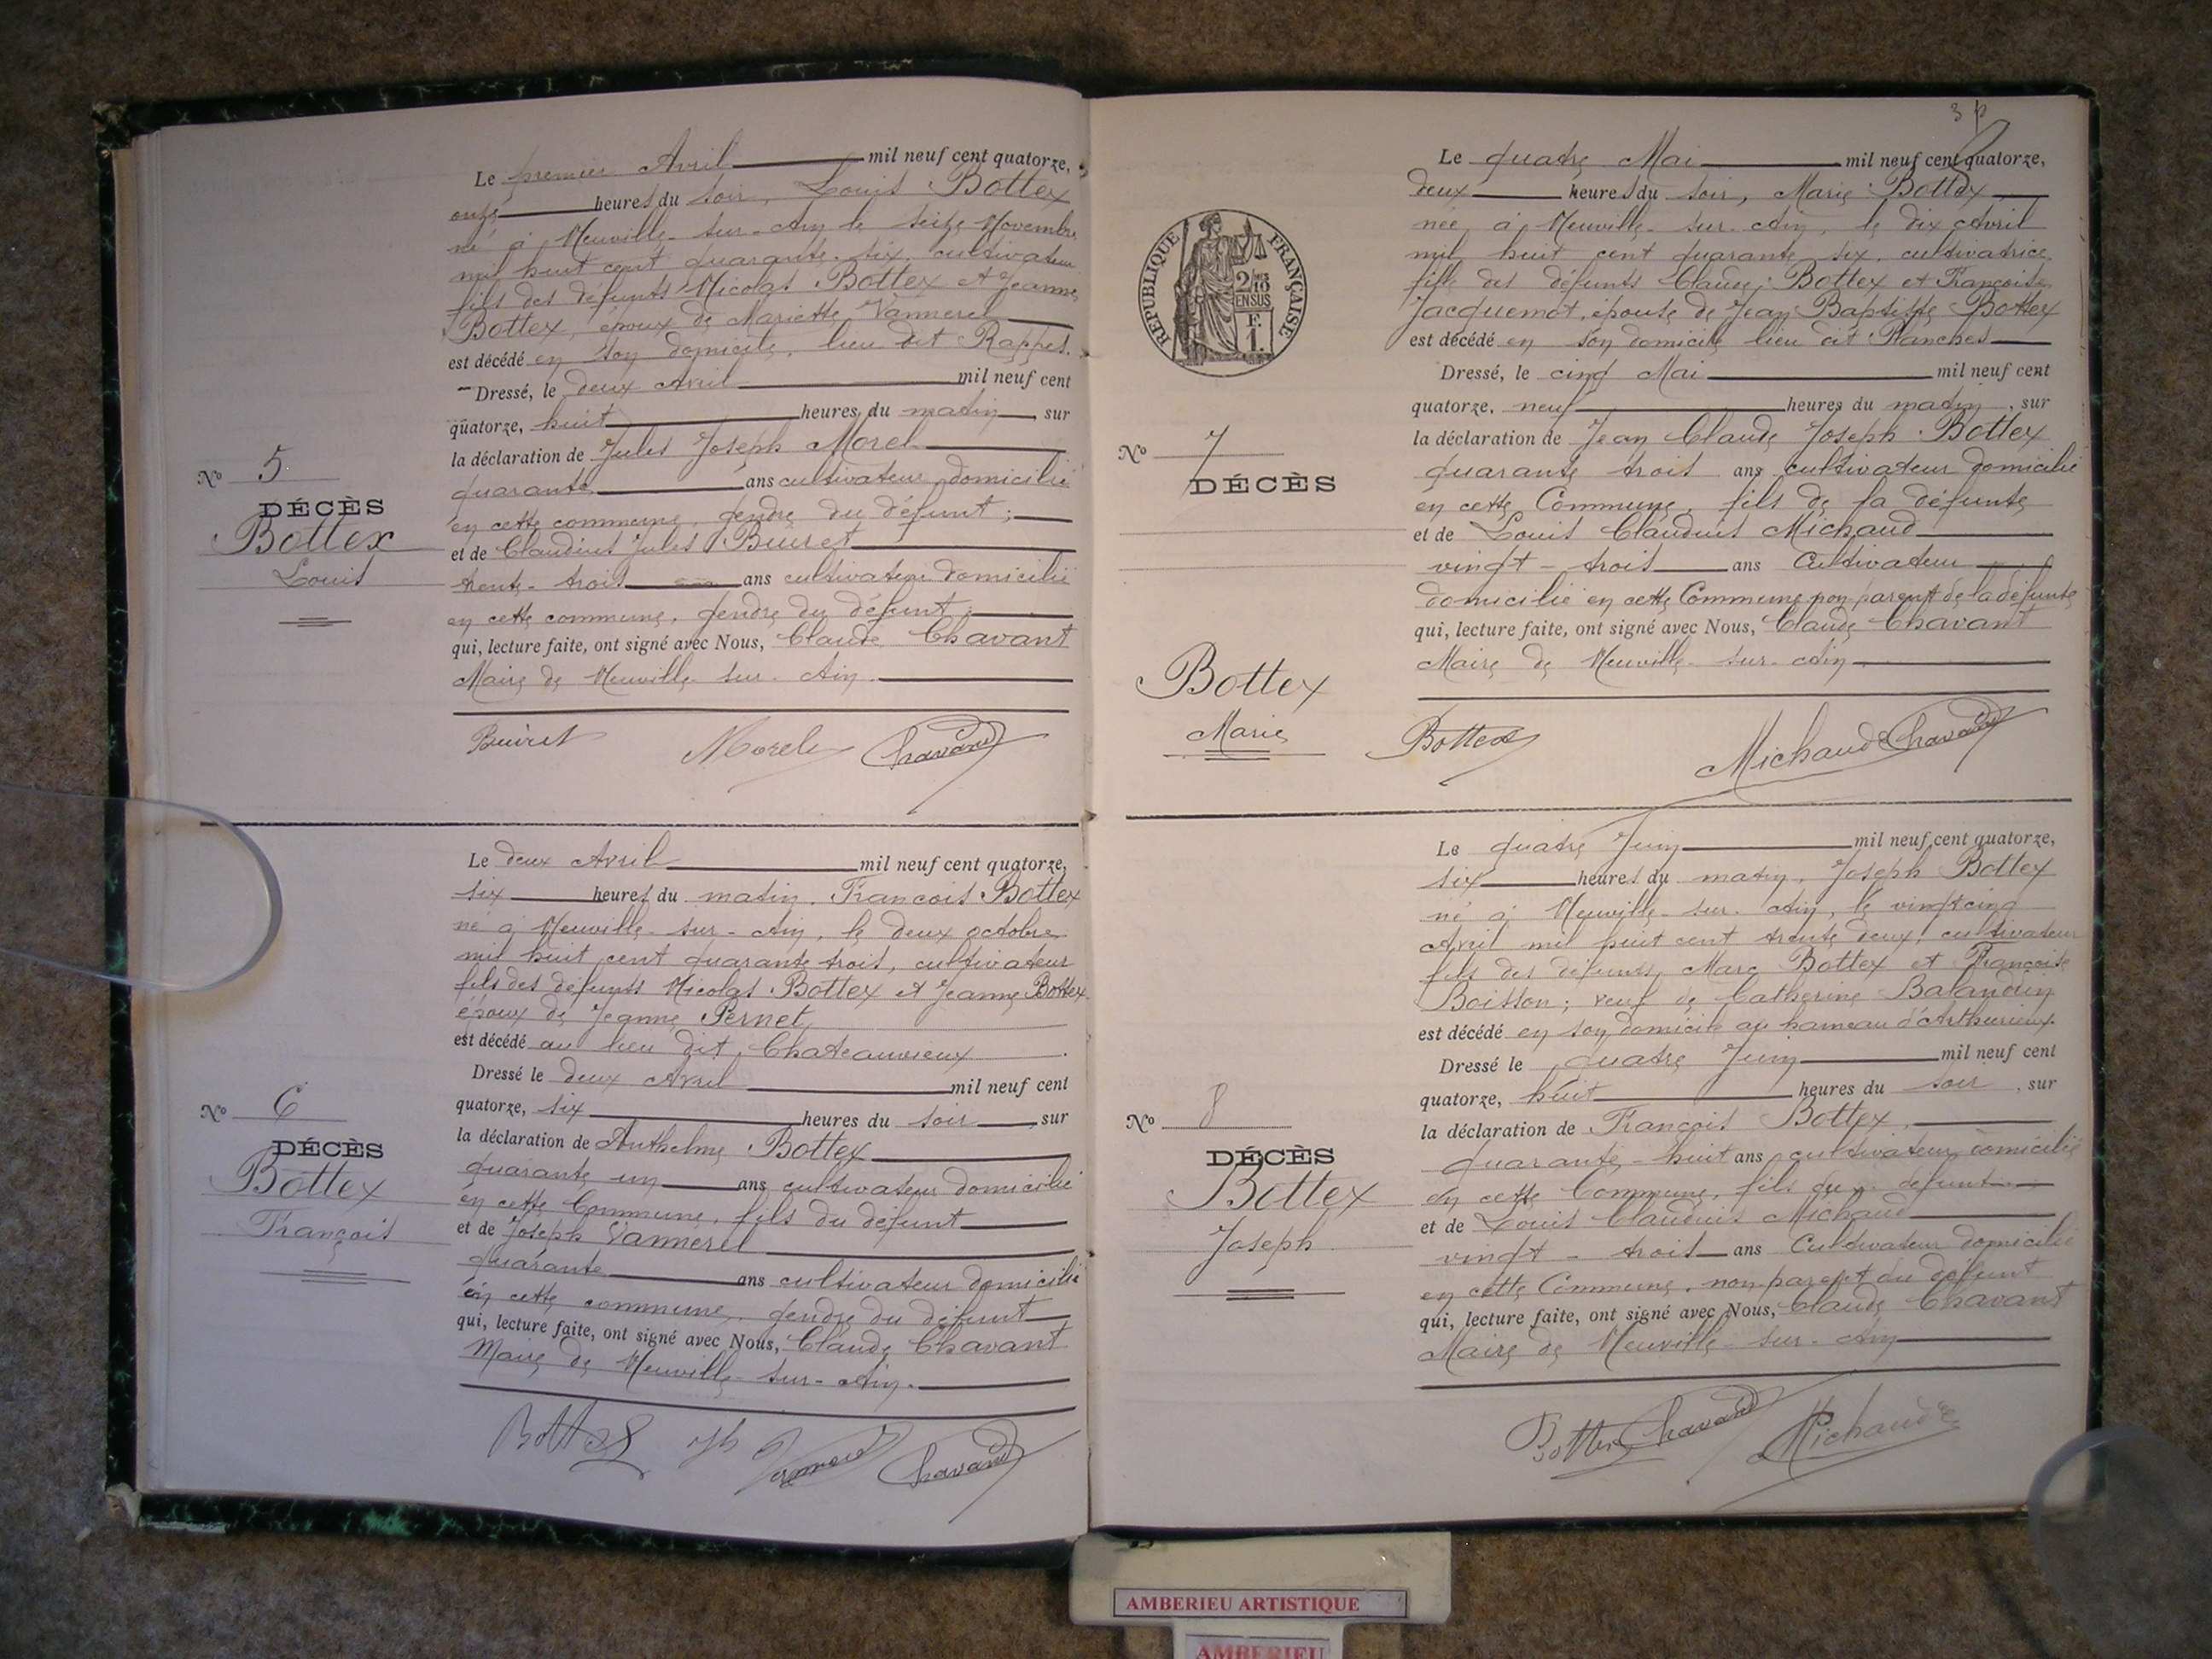 Le premier Avril mil neuf cent quatorze,
onze heures du soir, Louis Bottex
né à Neuville-sur-Ain le seize Novembre
mil huit cent quarante-six, cultivateur
fils des défunts Nicolas Bottex et Jeanne
Bottex, époux de Mariette Vannerel
est décédé en son domicile, lieu dit Rappes.
Dressé, le deux Avril mil neuf cent
quatorze, huit heures du matin, sur
la déclaration de Jules Joseph Morel
quarante ans cultivateur domicilié
en cette commune, gendre du défunt ;
et de Claudius Jules Buiret
trente-trois ans cultivateur domicilié
en cette commune, gendre du défunt ;
qui, lecture faite, ont signé avec Nous, Claude Chavant
Maire de Neuville-sur-Ain.
Nº 5
DÉCÈS
Bottex
Louis
Buiret Morel Chavant
Le deux Avril mil neuf cent quatorze,
six heures du matin, François Bottex
né à Neuville-sur-Ain, le deux octobre
mil huit cent quarante trois, cultivateur
fils des défunts Nicolas Bottex et Jeanne Bottex
époux de Jeanne Pernet
est décédé au lieu dit, Chateauvieux.
Dressé le deux Avril mil neuf cent
quatorze, six heures du soir, sur
la déclaration de Anthelme Bottex
quarante un ans cultivateur domicilié
en cette Commune, fils du défunt
et de Joseph Vannerel
quarante ans cultivateur domicilié
en cette commune, gendre du défunt
qui, lecture faite, ont signé avec Nous, Claude Chavant
Maire de Neuville-sur-Ain.
Nº 6
DÉCÈS
Bottex
François
Bottex Chavant
3
RÉPUBLIQUE FRANÇAISE
Le quatre Mai mil neuf cent quatorze,
deux heures du soir, Marie Bottex
née à Neuville-sur-Ain, le dix Avril
mil huit cent quarante six, cultivatrice
fille des défunts Claude Bottex et Françoise
Jacquemot, épouse de Jean Baptiste Bottex
est décédé en son domicile lieu dit Planches
Dressé, le cinq Mai mil neuf cent
quatorze, neuf heures du matin, sur
la déclaration de Jean Claude Joseph Bottex
quarante trois ans cultivateur domicilié
en cette Commune, fils de la défunte
et de Louis Claudius Michaud
vingt-trois ans Cultivateur
domicilié en cette Commune non parent de la défunte
qui, lecture faite, ont signé avec Nous, Claude Chavant
Maire de Neuville-sur-Ain
Nº 7
DÉCÈS
Bottex
Marie
Bottex Michaud Chavant
Le quatre Juin mil neuf cent quatorze,
six heures du matin, Joseph Bottex
né à Neuville-sur-Ain, le vingt cinq
Avril mil huit cent trente deux, cultivateur
fils des défunts Marc Bottex et Françoise
Boisson ; veuf de Catherine Balandrin
est décédé en son domicile au hameau d'Arthurieux.
Dressé le quatre Juin mil neuf cent
quatorze, huit heures du soir, sur
la déclaration de François Bottex,
quarante-huit ans cultivateur domicilié
en cette Commune, fils du défunt
et de Louis Claudius Michaud
vingt-trois ans Cultivateur domicilié
en cette Commune, non parent du défunt
qui, lecture faite, ont signé avec Nous, Claude Chavant
Maire de Neuville-sur-Ain
Nº 8
DÉCÈS
Bottex
Joseph
Bottex Chavant Michaud
AMBERIEU ARTISTIQUE
AMBERIEU